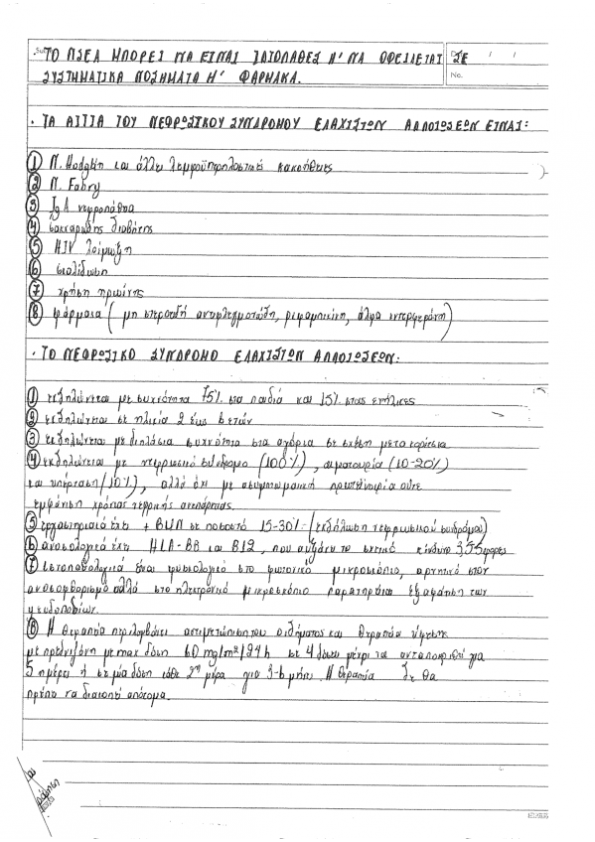 ΤΟ ΝΣΕΑ ΜΠΟΡΕΙ ΝΑ ΕΙΝΑΙ ΙΔΙΟΠΑΘΕΣ Η' ΝΑ ΟΦΕΙΛΕΤΑΙ ΣΕ
ΣΥΣΤΗΜΑΤΙΚΑ ΝΟΣΗΜΑΤΑ Η' ΦΑΡΜΑΚΑ.
No.
· ΤΑ ΑΙΤΙΑ ΤΟΥ ΝΕΦΡΩΣΙΚΟΥ ΣΥΝΔΡΟΜΟΥ ΕΛΑΧΙΣΤΩΝ ΑΛΛΟΙΩΣΕΩΝ ΕΙΝΑΙ:
① Ν. Hodgkin και άλλες λεμφοϋπερπλαστικές κακοήθειες
② Ν. Fabry
③ IgA νεφροπάθεια
④ σακχαρώδης διαβήτης
⑤ HIV λοίμωξη
⑥
⑦ χρήση ηρωίνης
⑧ φάρμακα ( μη στεροειδή αντιφλεγματώδη, ριφαμπικίνη, άλφα ιντερφερόνη)
· ΤΟ ΝΕΦΡΩΣΙΚΟ ΣΥΝΔΡΟΜΟ ΕΛΑΧΙΣΤΩΝ ΑΛΛΟΙΩΣΕΩΝ:
① εκδηλώνεται με συχνότητα 75% στα παιδιά και 15% στους ενήλικες
② εκδηλώνεται σε ηλικία 2 έως 6 ετών
③ εκδηλώνεται με διπλάσια συχνότητα στα αγόρια σε σχέση με τα κορίτσια
④ εκδηλώνεται με νεφρωσικό σύνδρομο (100%), αιματουρία (10-20%)
και υπέρταση (10%), αλλά όχι με ασυμπτωματική πρωτεϊνουρία ούτε
εμφάνιση χρόνιας νεφρικής ανεπάρκειας.
⑤ εργαστηριακά έχει + BUN σε ποσοστό 15-30% (εκδήλωση νεφρωσικού συνδρόμου)
⑥ ανοσολογικά έχει HLA-B8 και B12, που αυξάνει το σχετικό κίνδυνο 3,55 φορές
⑦ ιστοπαθολογικά είναι φυσιολογικό στο φωτονικό μικροσκόπιο, αρνητικό στον
ανοσοφθορισμό αλλά στο ηλεκτρονικό μικροσκόπιο παρατηρείται εξαφάνιση των
ποδοπλοδίων.
⑧ Η θεραπεία περιλαμβάνει αντιμετώπιση του οιδήματος και θεραπεία ύφεσης
με πρεδνιζόνη με max δόση 60 mg/m²/24h σε 4 δόσεις μέχρι να ανταποκριθεί για
5 ημέρες ή σε μία δόση κάθε 2η μέρα για 3-6 μήνες. Η θεραπεία δε θα
πρέπει να διακοπεί απότομα.